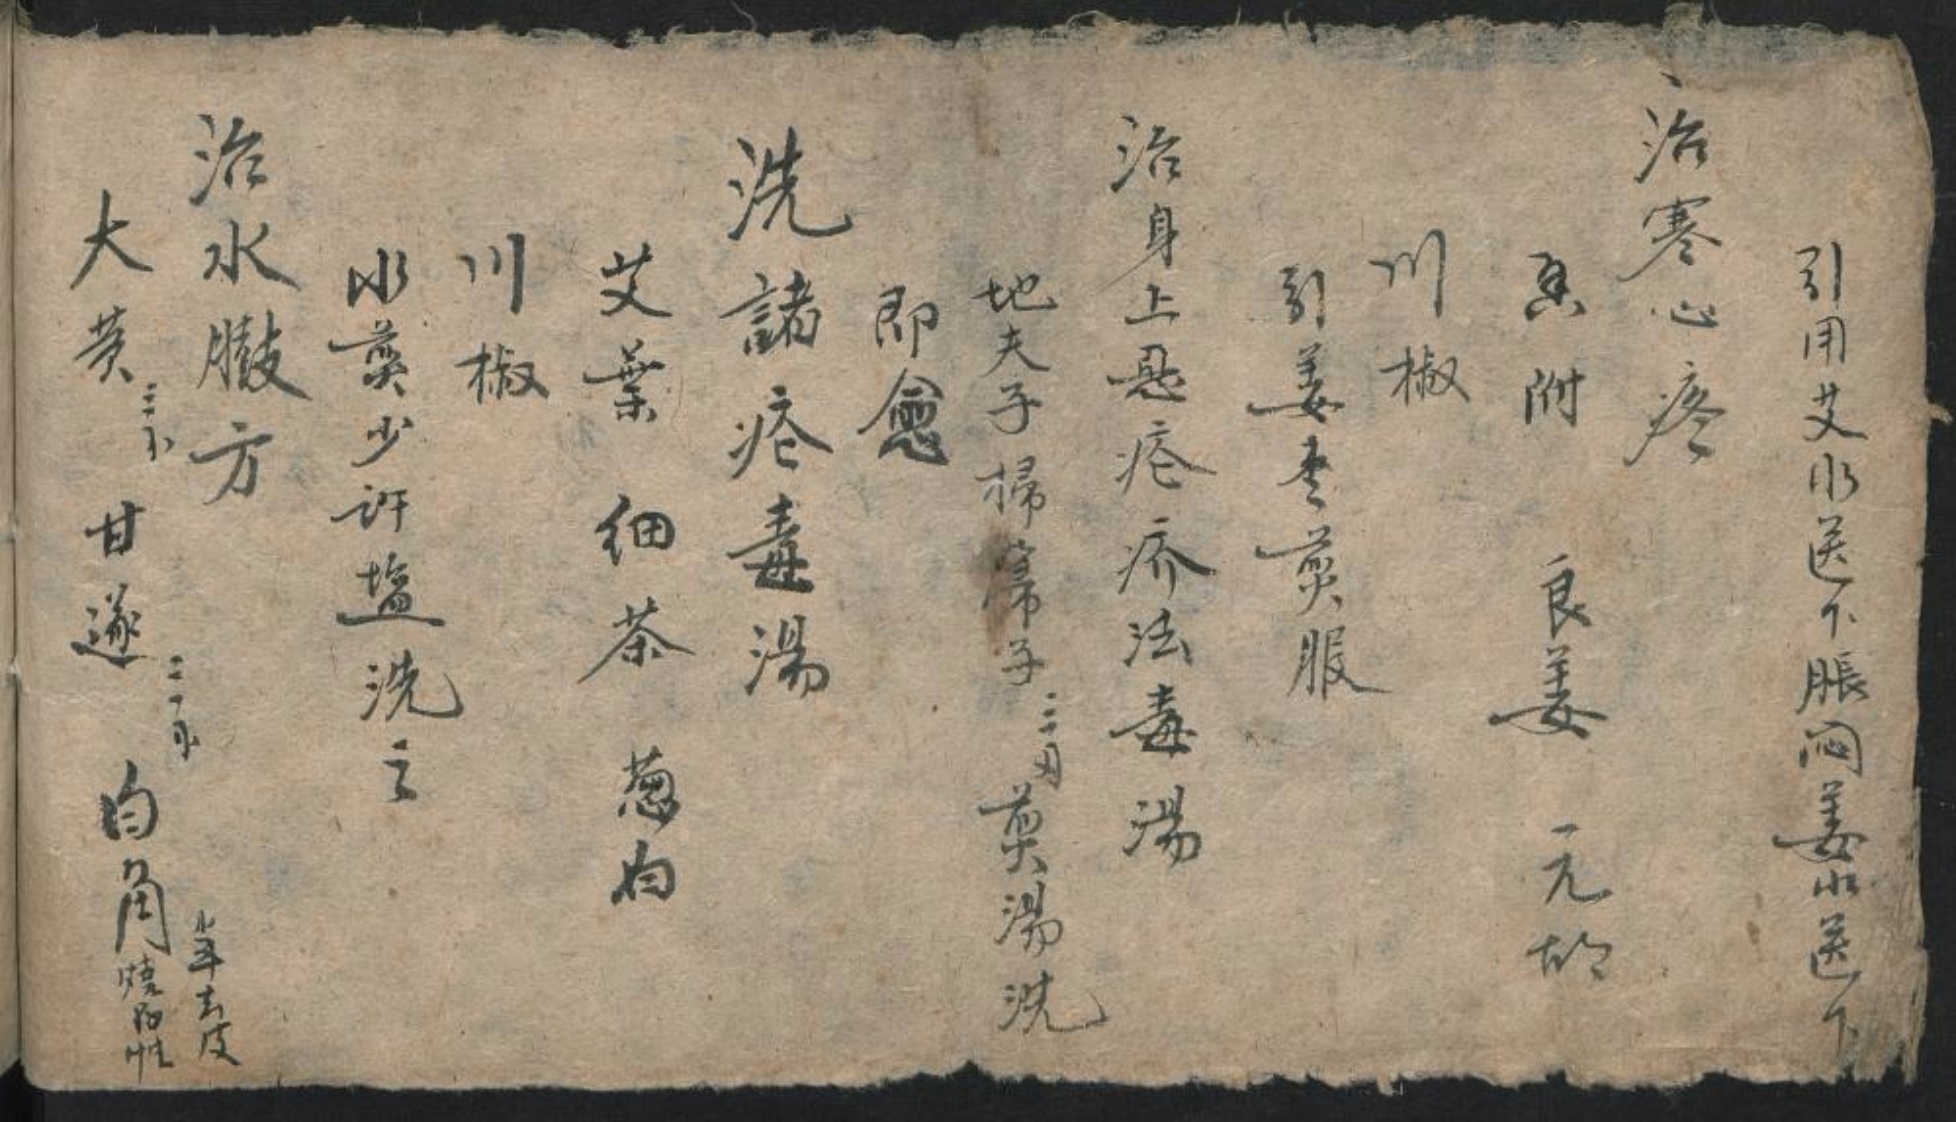 引用艾水送下脹悶姜水送下
治寒心疼
香附 良姜 元胡
川椒
引姜枣煎服
治身上恶疮疥法毒湯
地夫子掃帚子 煎湯洗
即愈
洗諸疮毒湯
艾葉 细茶 葱白
川椒
水煎少許塩洗之
治水臌方
大黄 甘遂 白角
去皮